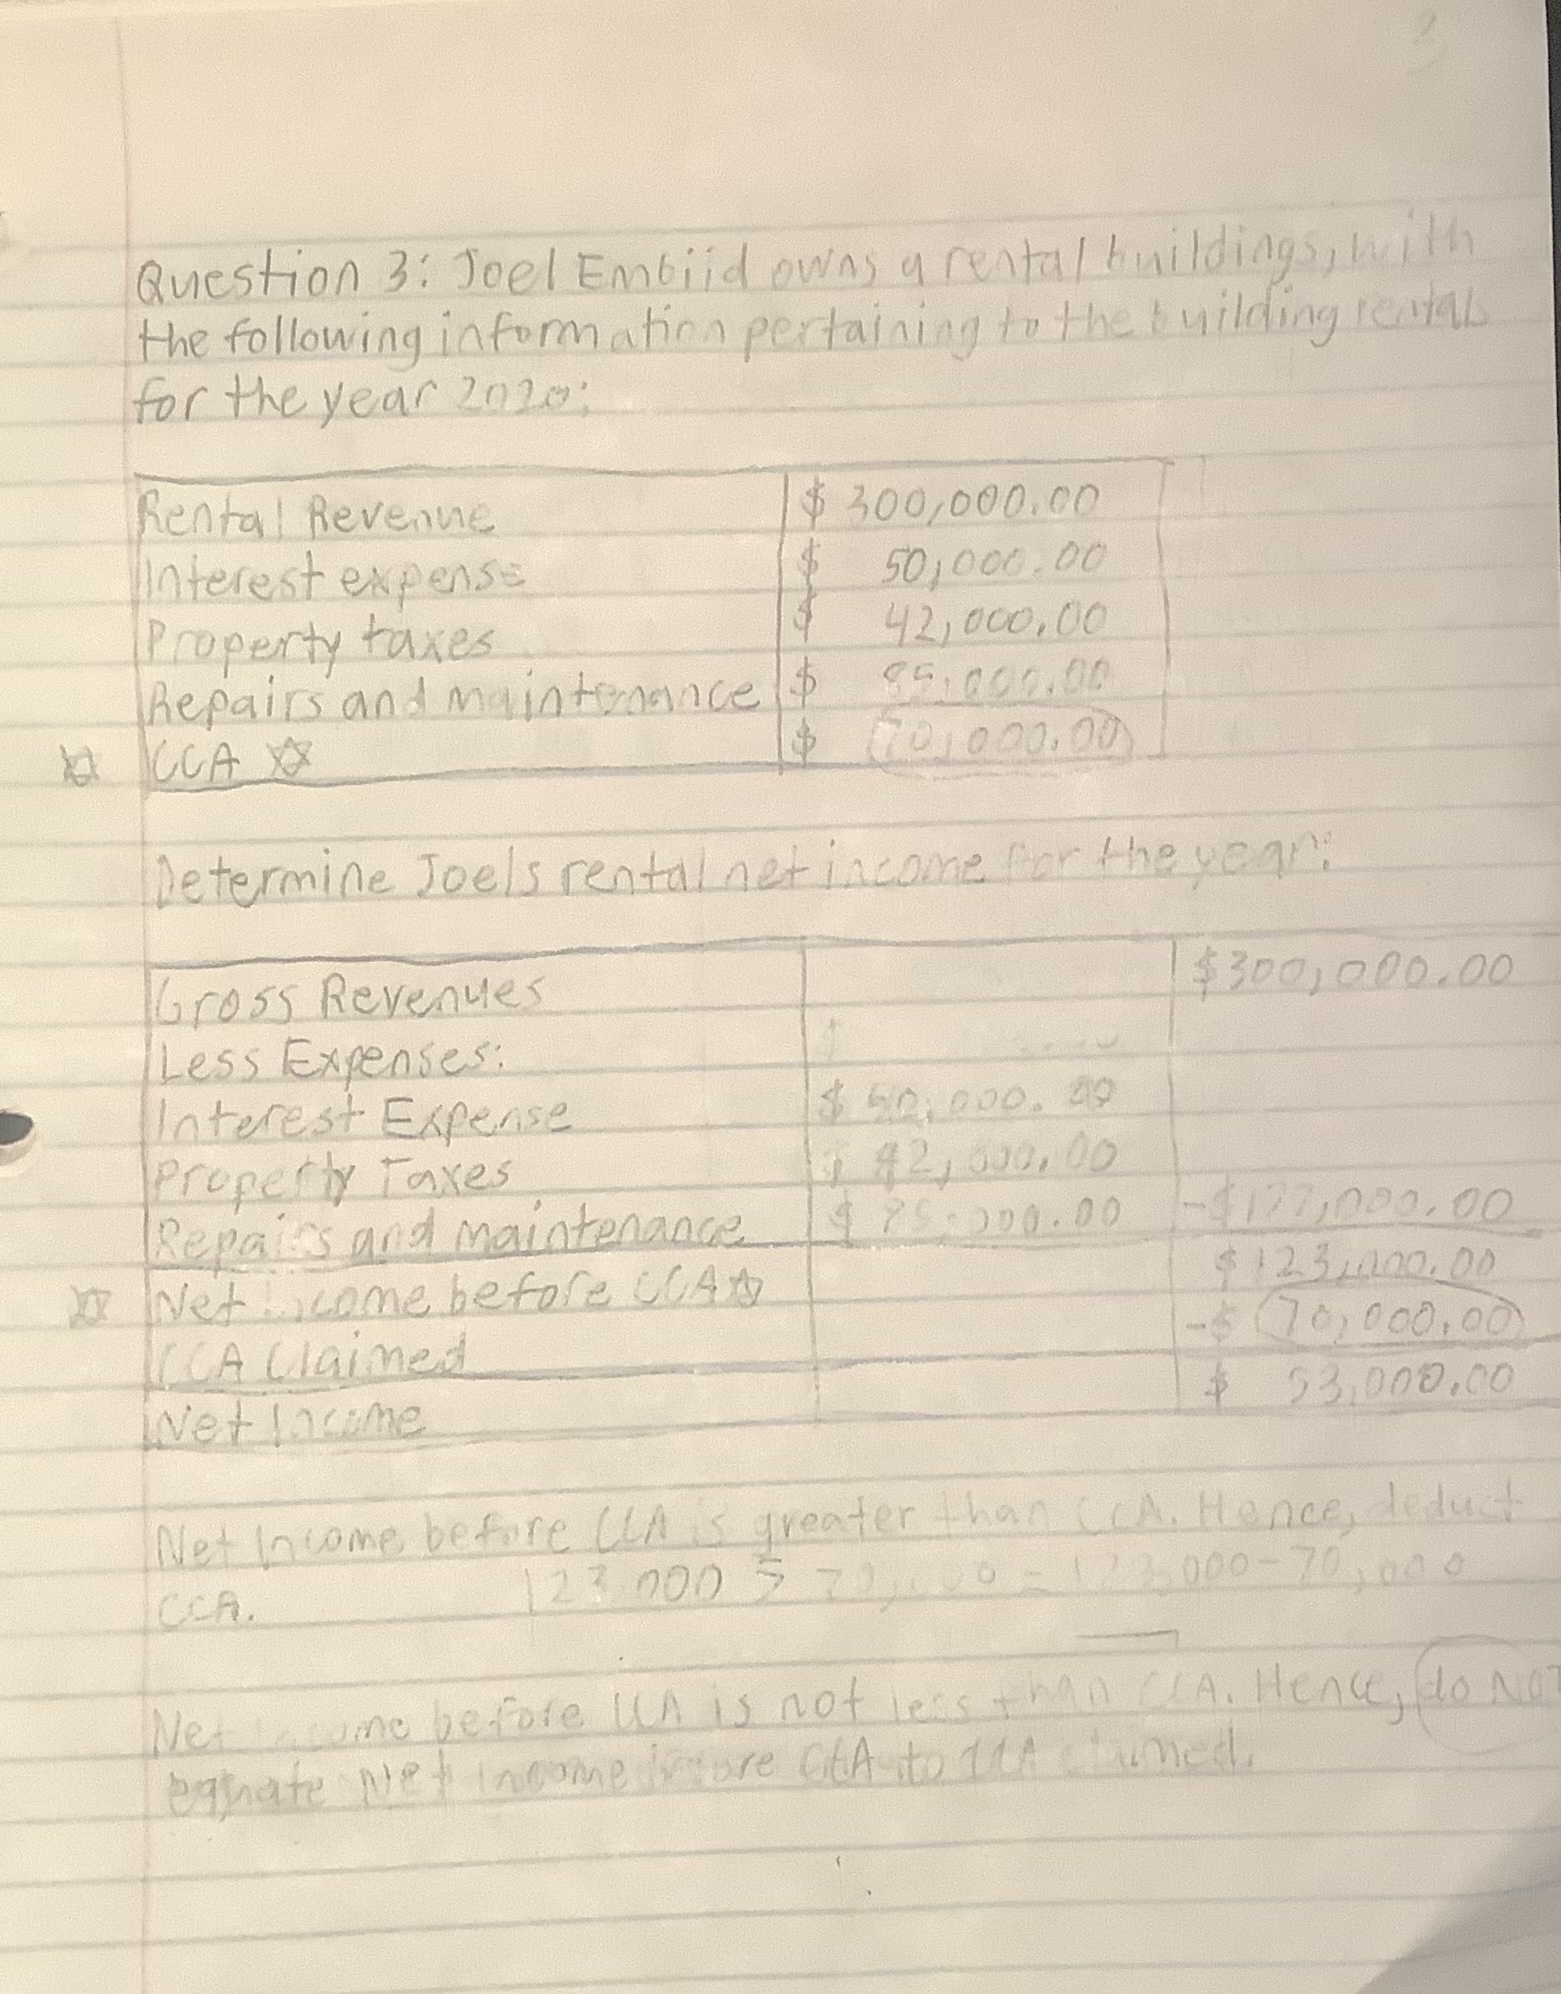 3
Question 3: Joel Embiid owns a rental buildings, with
the following information pertaining to the building rentals
for the year 2020:
Rental Revenue $ 300,000.00
Interest expense $ 50,000.00
Property taxes $ 42,000.00
Repairs and maintenance $ 85,000.00
CCA $ 70,000.00
Determine Joels rental net income for the year:
Gross Revenues $300,000.00
Less Expenses:
Interest Expense $ 50,000.00
Property Taxes $ 42,000.00
Repairs and maintenance $ 85,000.00 -$177,000.00
Net Income before CCA $ 123,000.00
CCA Claimed -$ 70,000.00
Net Income $ 53,000.00
Net Income before CCA is greater than CCA. Hence, deduct
CCA. 123,000 > 70,000 = 123,000-70,000
Net Income before CCA is not less than CCA. Hence, do NOT
equate Net Income before CCA to CCA claimed.